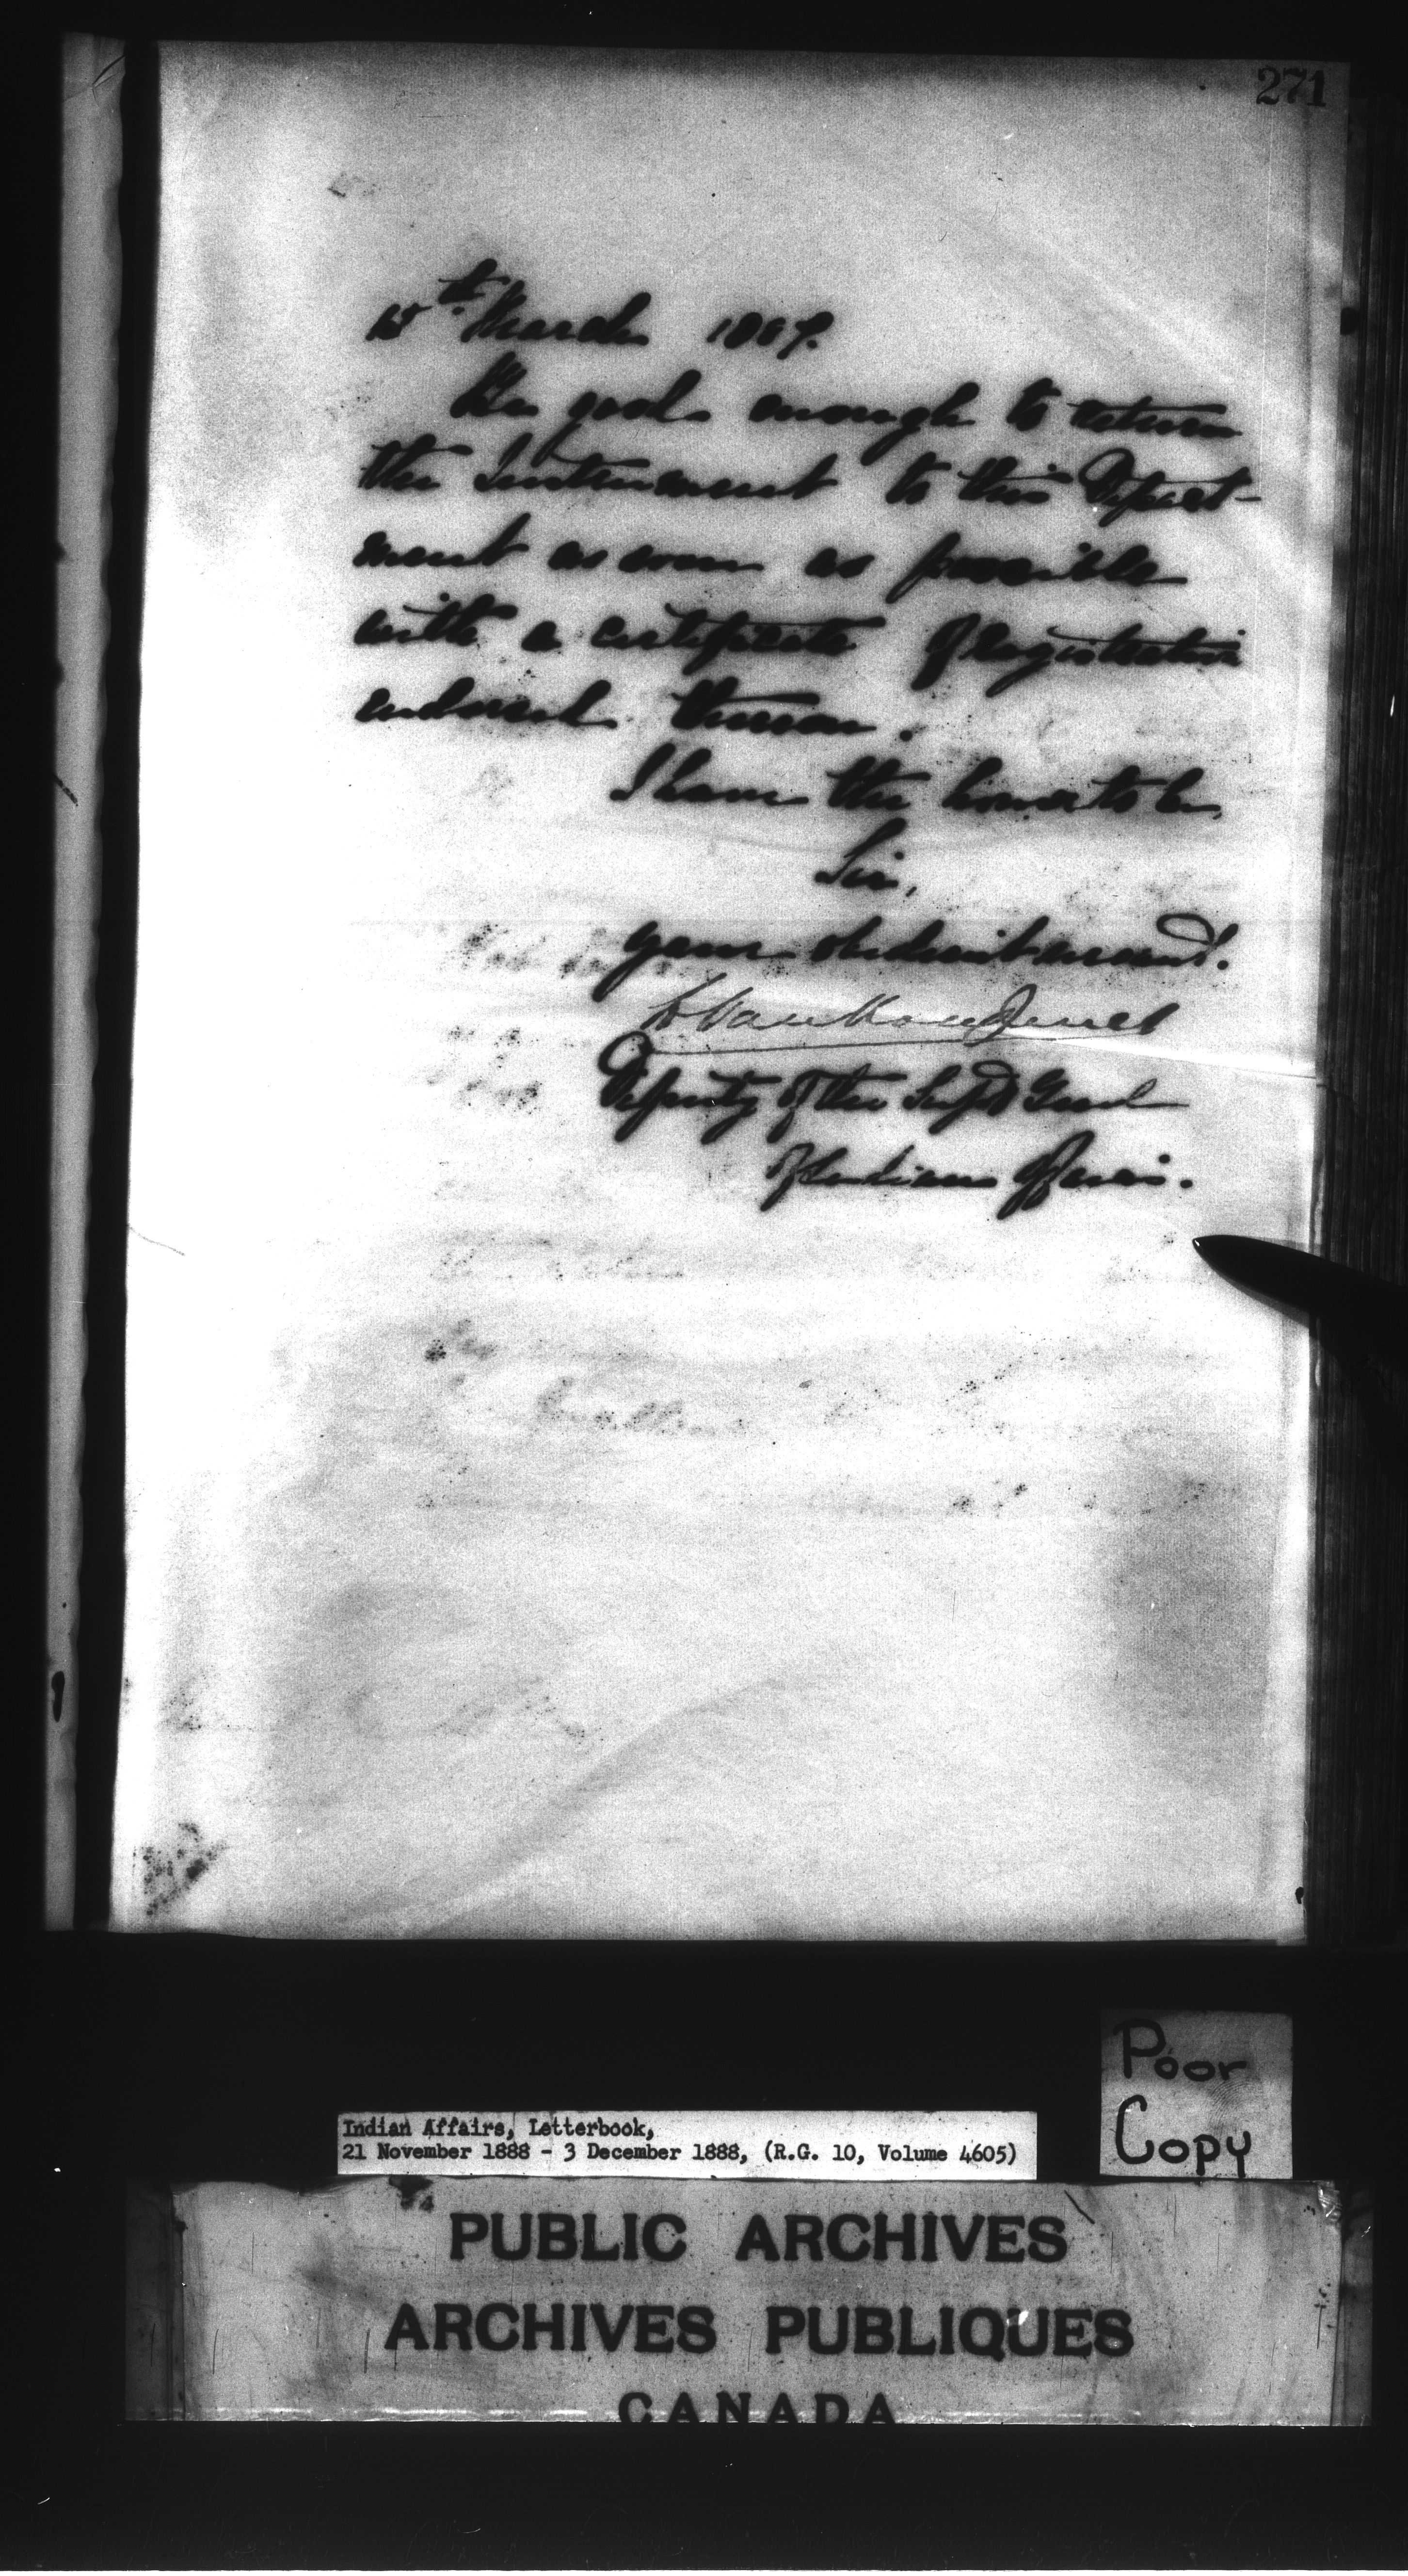 271
15th March 1887.
Be good enough to return
the Instrument to this Depart-
ment as soon as possible
with a certificate of Registration
endorsed thereon.
I have the honor to be,
Sir,
your obedient servant.
L. VanKoughnet
Deputy of the Supt Genl
of Indian Affairs.
Poor
Copy
Indian Affairs, Letterbook,
21 November 1888 - 3 December 1888, (R.G. 10, Volume 4605)
PUBLIC ARCHIVES
ARCHIVES PUBLIQUES
CANADA